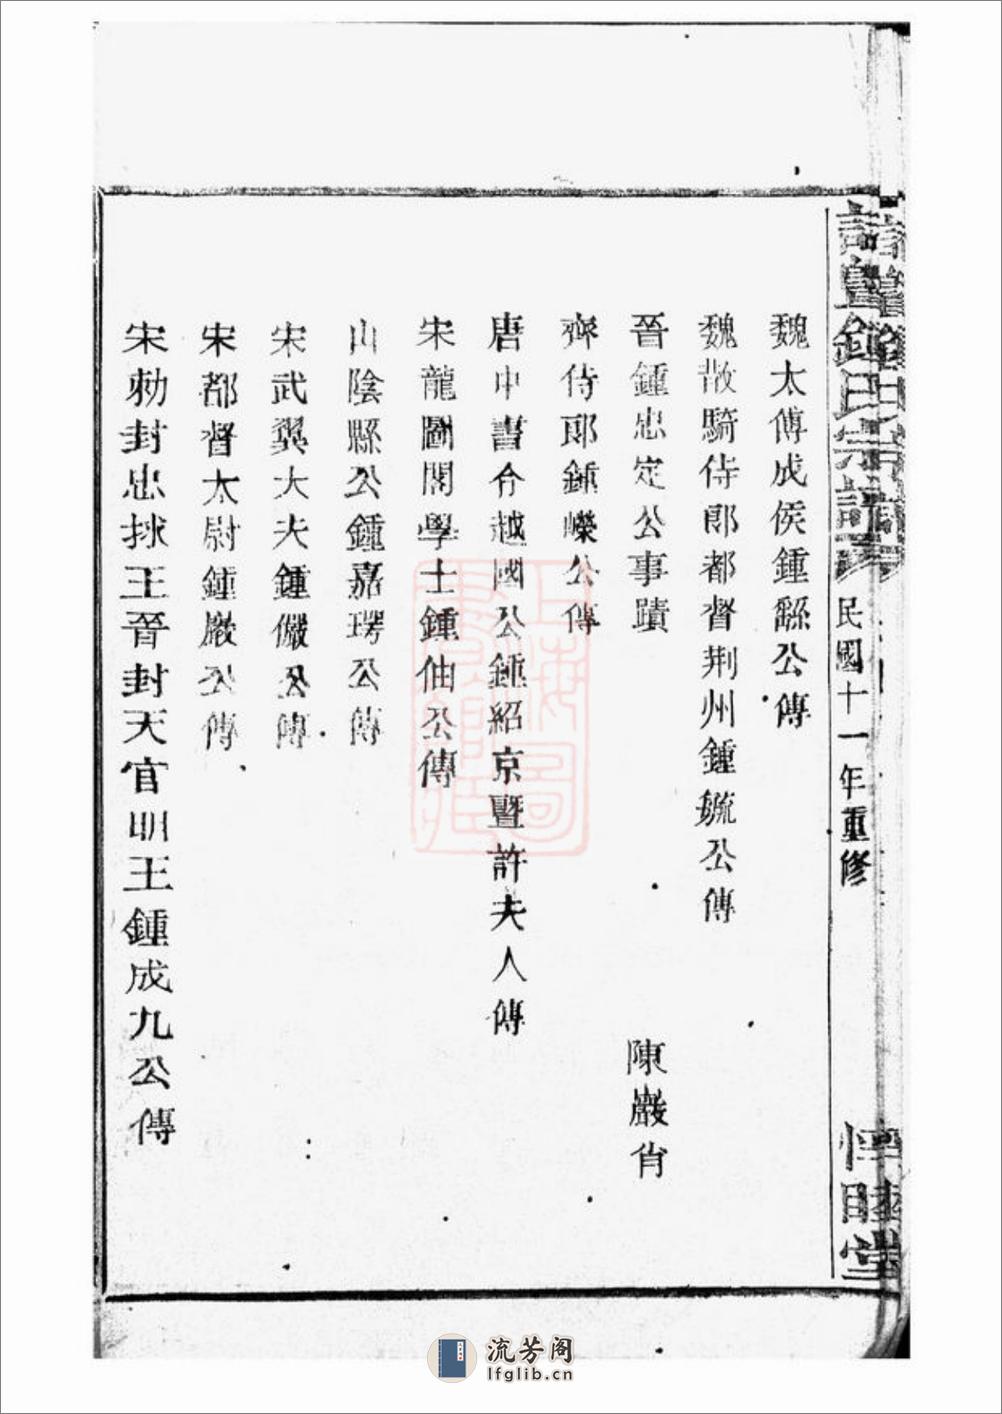 諸曁鍾氏宗譜
民國十一年重修
惇睦堂
魏太傅成侯鍾繇公傳
魏散騎侍郎都督荆州鍾毓公傳
晉鍾忠定公事蹟 陳巖肖
齊侍郎鍾嶸公傳
唐中書令越國公鍾紹京曁許夫人傳
宋龍圖閣學士鍾伷公傳
山陰縣公鍾嘉瑎公傳
宋武翼大夫鍾儼公傳
宋都督太尉鍾巖公傳
宋勅封忠捄王晉封天官明王鍾成九公傳
上海圖書館藏
流芳阁
lfglib.cn